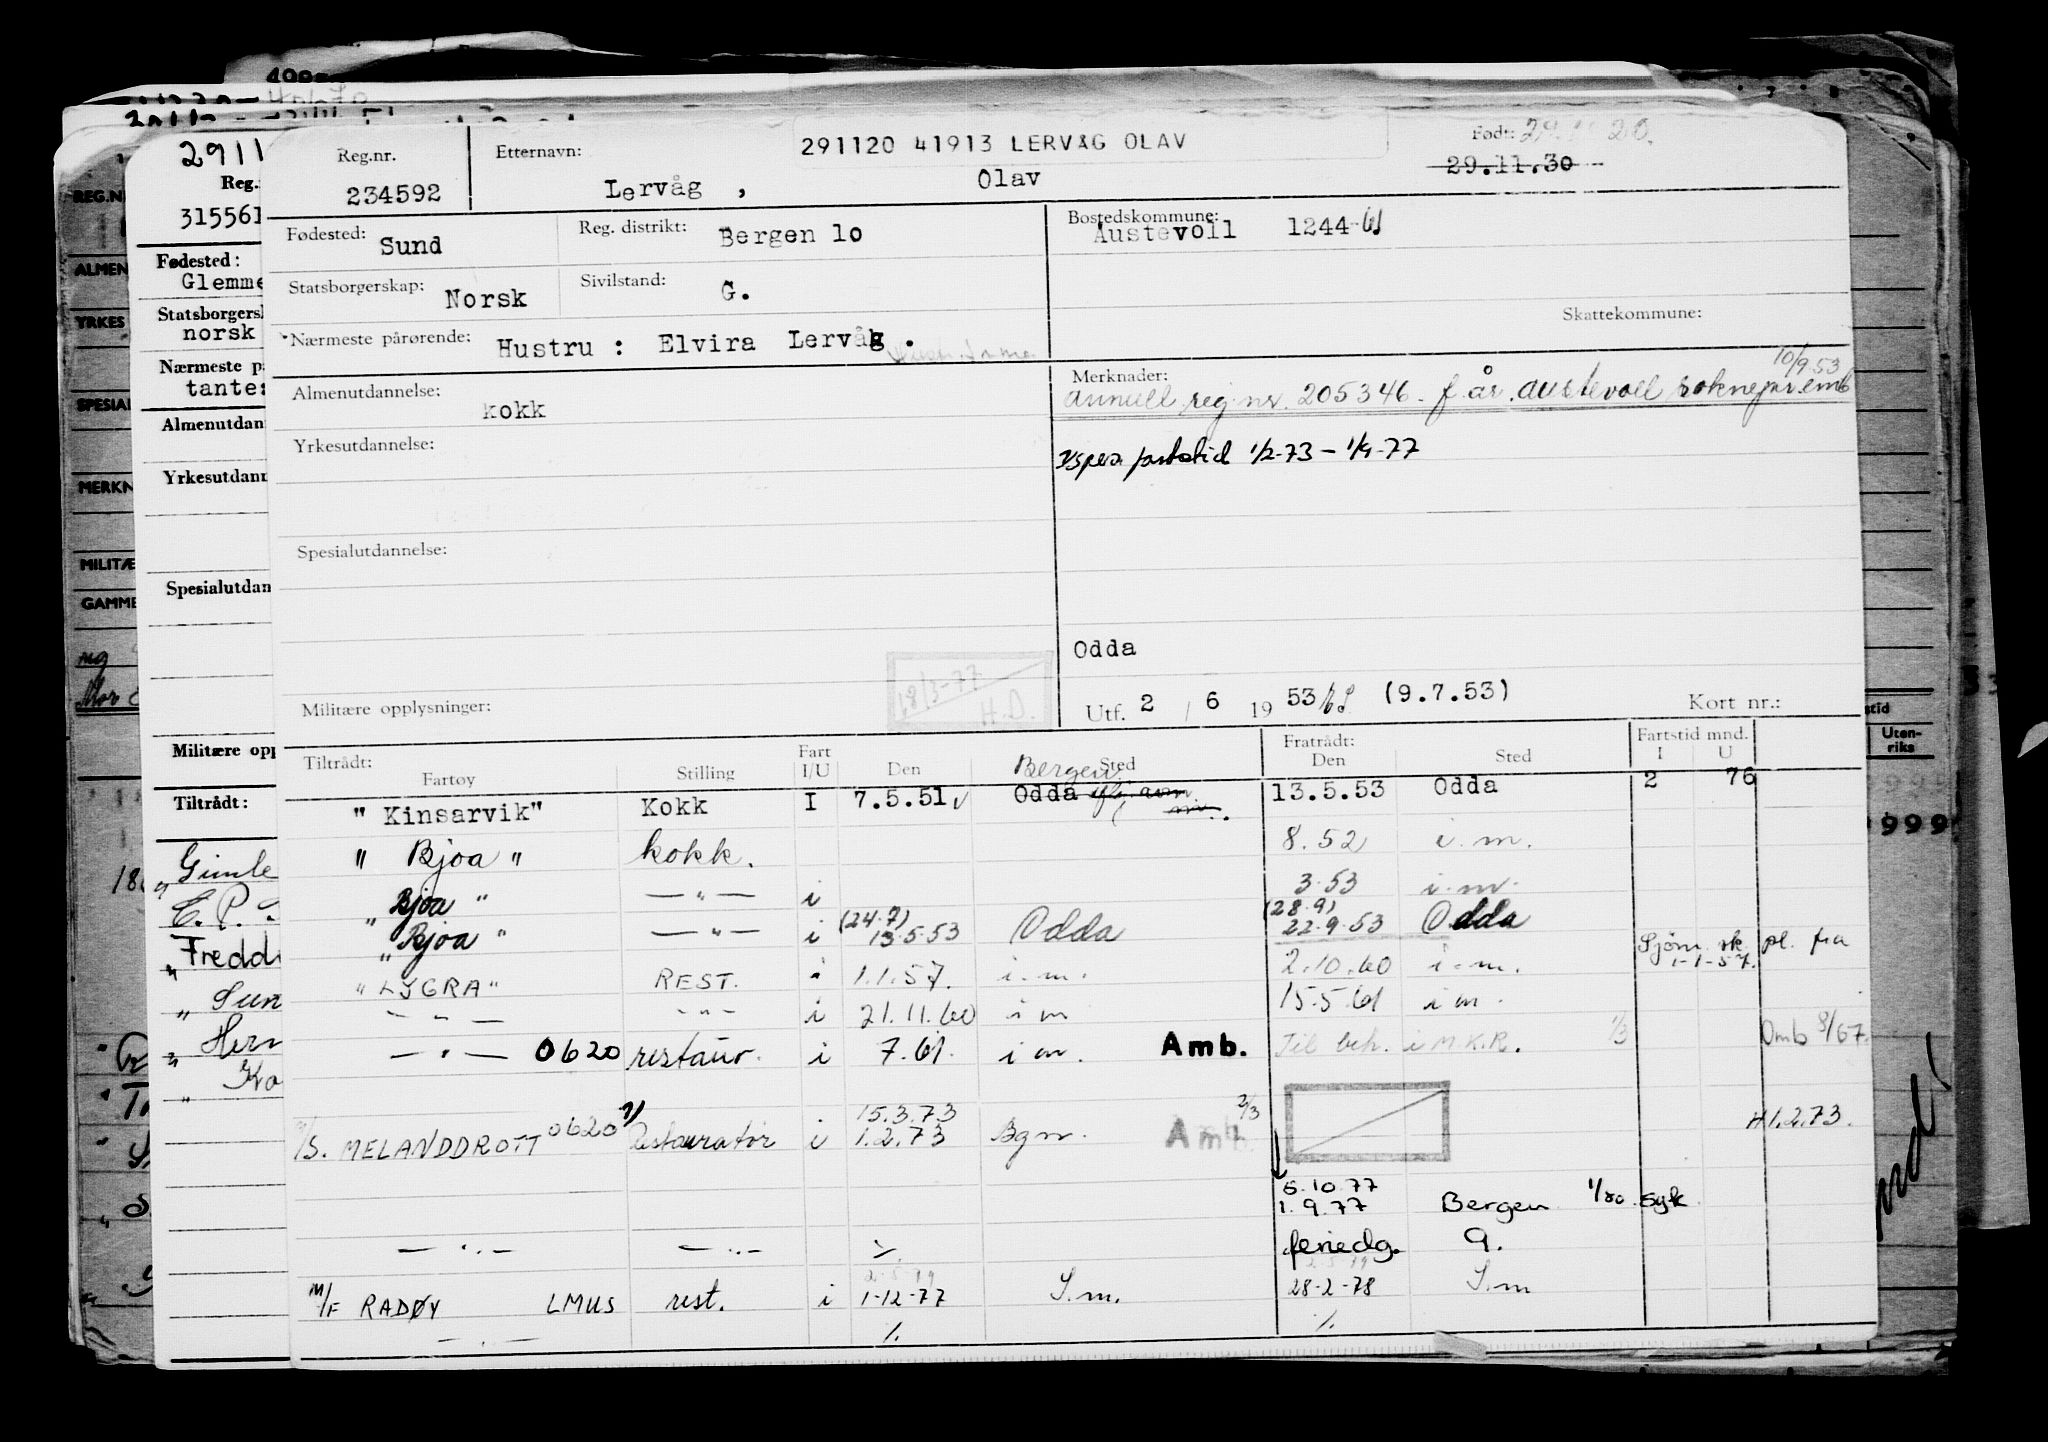 291120 41913 LERVÅG OLAV
Reg.nr.
234592
Etternavn:
Lervåg , Olav
Født:
29.11.30
Fødested: Sund
Reg. distrikt: Bergen lo
Bostedskommune:
Austevoll 1244
Statsborgerskap: Norsk
Sivilstand: G.
Skattekommune:
Nærmeste pårørende: Hustru : Elvira Lervåg .
Almenutdannelse: kokk
Merknader: 10/9 53
annull reg. nr. 205346 - f. år. austevoll
Yrkesutdannelse:
fartstid 1/2-73 - 1/9-77
Spesialutdannelse:
Odda
18/3-77
H.D.
Militære opplysninger:
Utf. 2 / 6 1953 (9.7.53)
Kort nr.:
Tiltrådt: Fratrådt: Fartstid mnd.
Fartøy Stilling Fart I/U Den Sted Den Sted I U
Bergen
"Kinsarvik" Kokk I 7.5.51 Odda 13.5.53 Odda 2 76
" Bjoa " kokk. 8.52 i.m.
" Bjoa " — " — i 3.53 i.m.
(24.7) (28.9)
" Bjoa " — " — i 13.5.53 Odda 22.9.53 Odda
Sjøm. pl. fra
1-1-57.
"LYGRA" REST. i 1.1.57. i.m. 2.10.60 i.m.
— " — -"- i 21.11.60 i m 15.5.61 i m.
— " — 0620 restaur. i 7.61. i m. Amb. Til beh. i M.K.R. 1/3 Omb 8/67.
15.3.73 2/3
M/S. MELANDDROTT 0620 Restauratør i 1.2.73 Bgn. Amb. H 1.2.73.
5.10.77
1.9.77 Bergen 1/10. syk.
— " — — " — feriedg. 9.
2.5.79
M/F RADØY LMUS rest. i 1-12-77 S.m. 28-2-78 S.m
— " —
2911
Reg.
315561
Fødested:
Glemme
Statsborgersk
norsk
Nærmeste p
tante:
Almenutdan
Yrkesutdann
Spesialutdan
Militære opp
Tiltrådt:
" Gimle
E. P.
" Freddi
" Sun
" Her
" Ko
REG.N
ALMEN
YRKES
SPESIAL
MERKN
MILITÆ
GAMME
Mor
Uten-
riks
999